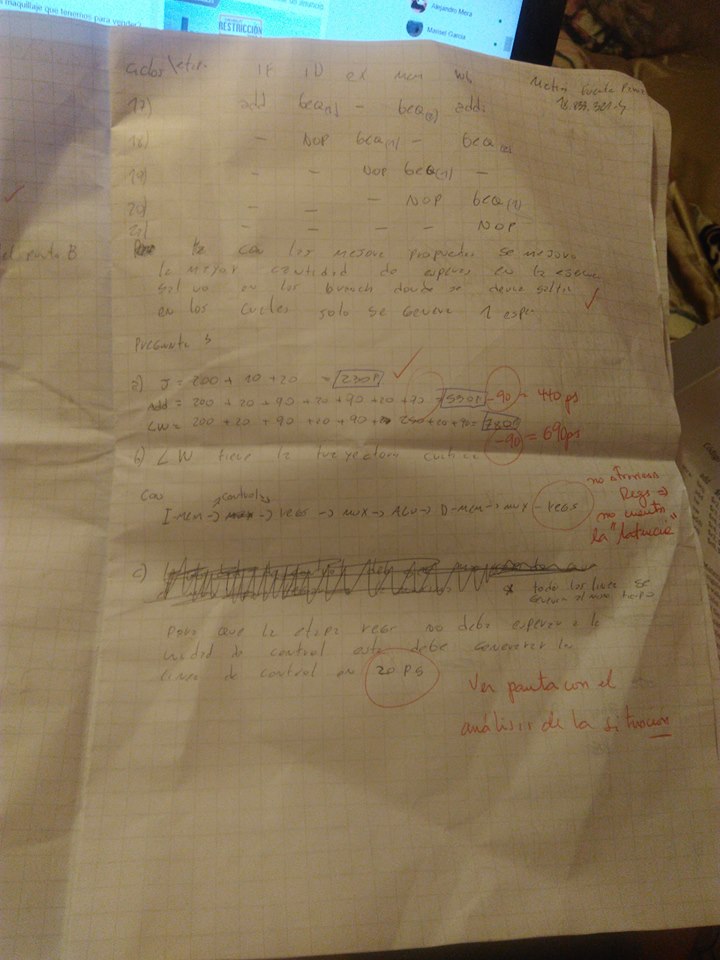 maquillaje que tenemos para vender
RESTRICCIÓN
Alejandro Mera
Marisel Garcia
Ciclos/etapa IF ID ex mem wb
17) add beq(1) - beq(2) addi
18) - NOP beq(1) - beq(2)
19) - - NOP beq(1) -
20) - - - NOP beq(1)
21) - - - - NOP
con las mejoras propuestas se mejora
la mayor cantidad de esperas en la
salvo en los branch donde se debe saltar
en los cuales solo se genera 1 espera
Pregunta 3
a) J = 200 + 10 + 20 = 230 P
Add = 200 + 20 + 90 + 20 + 90 + 20 + 90 = 530 P -90 = 440 ps
LW = 200 + 20 + 90 + 20 + 90 + 250 + 20 + 90 = 780 -90 = 690 ps
b) LW tiene la trayectoria critica
Con
control
I-MEM → → regs → mux → ALU → D-mem → mux - regs
no atraviesa
Regs ⇒
no cuenta
la "latencia"
c)
* todas las lineas se
generan al mismo tiempo
Para que la etapa regs no deba esperar a la
unidad de control esta debe generar la
linea de control en 20 PS
Ver pauta con el
análisis de la situación
el punto B